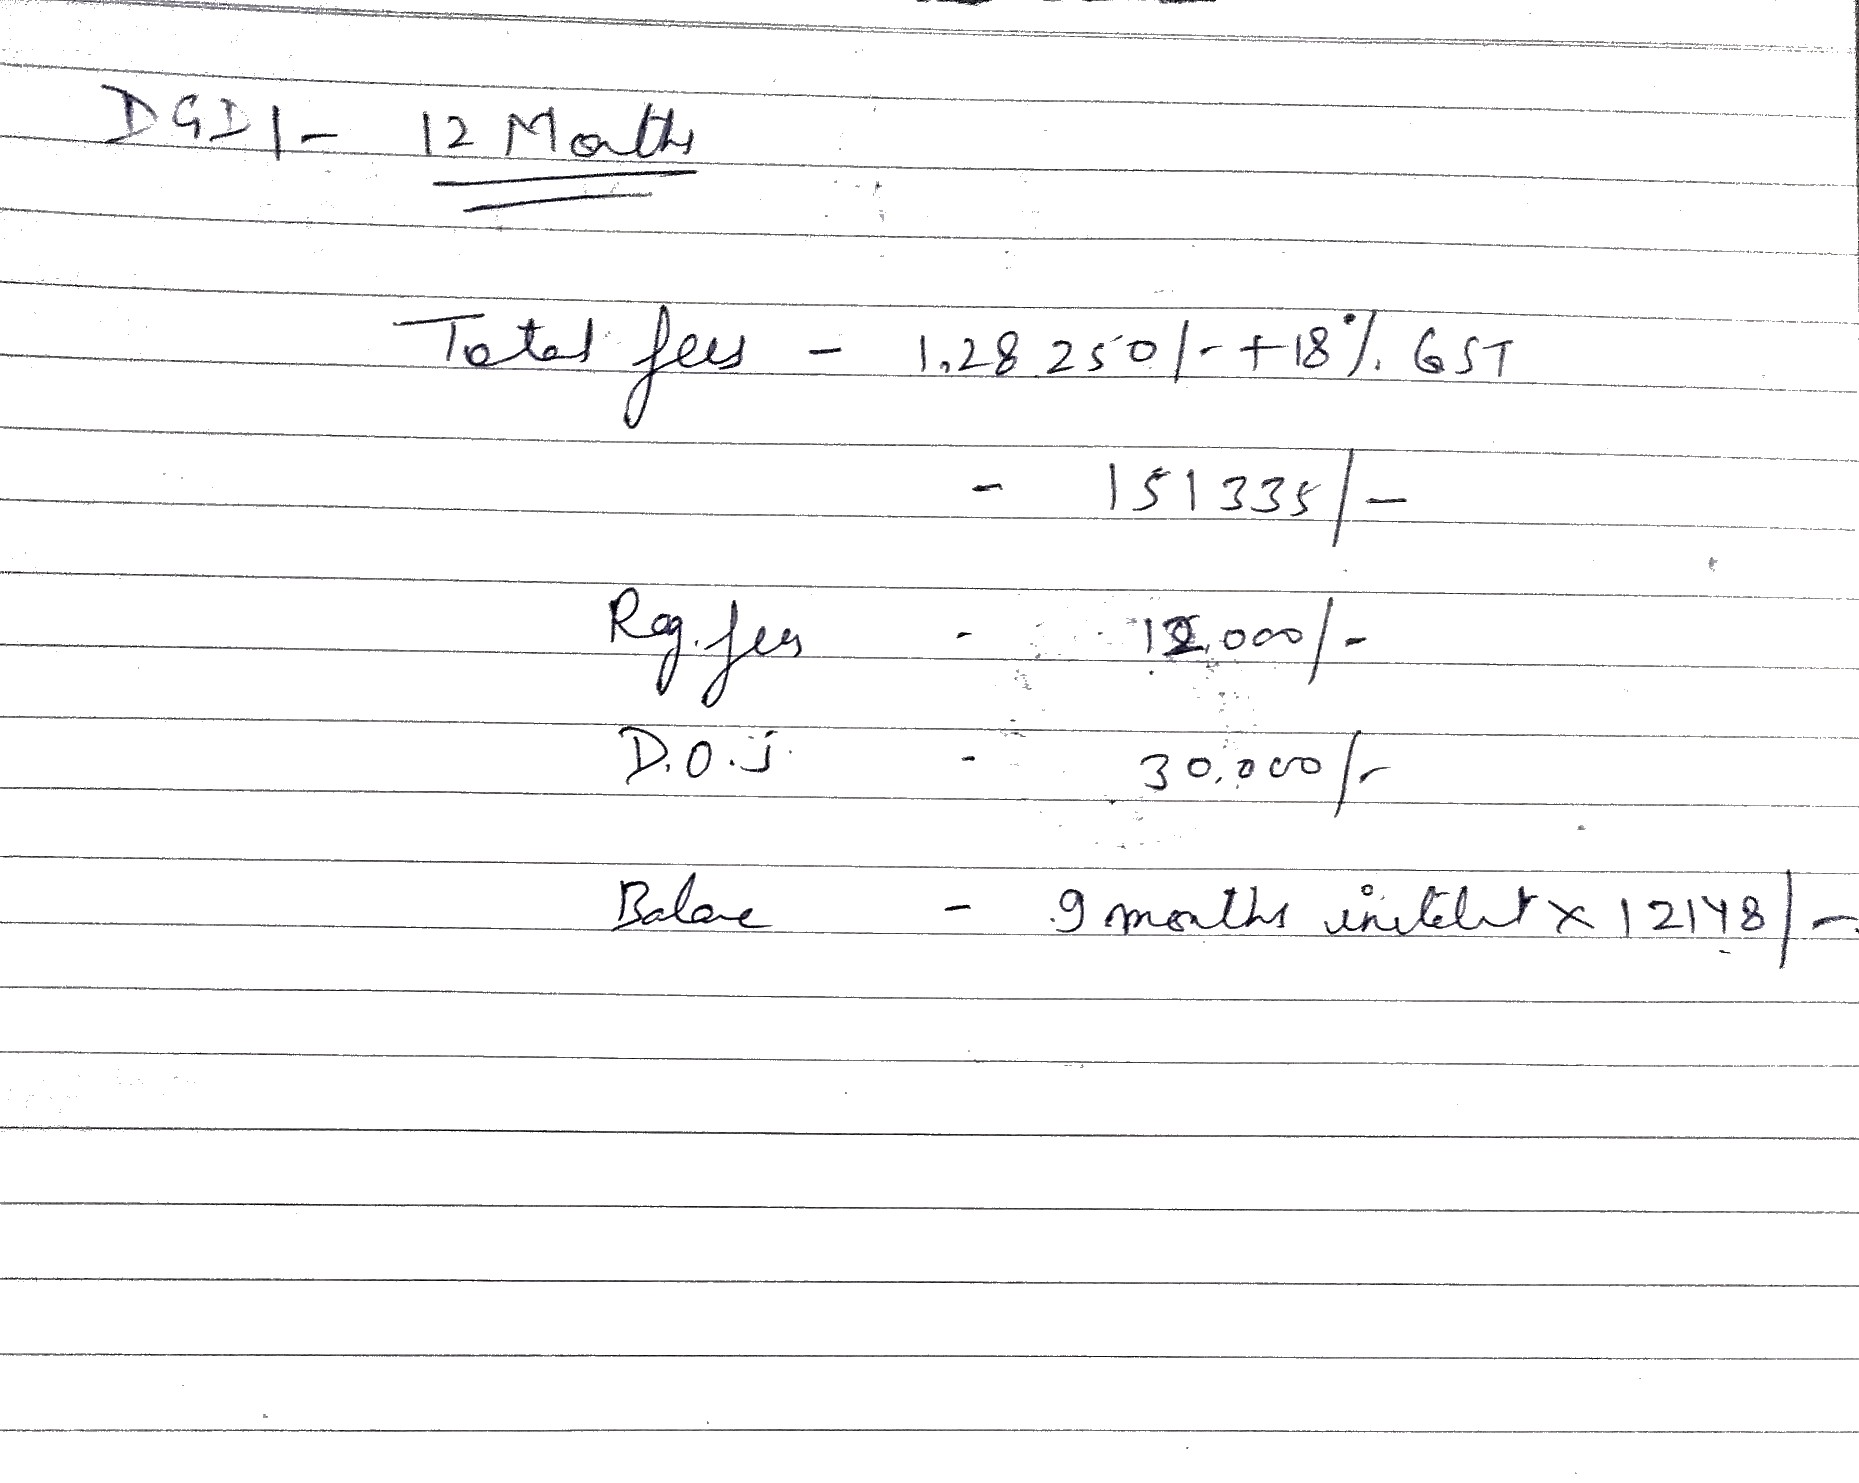 DGD1- 12 Months
Total fees - 1,28 250/- + 18% GST
- 151335/-
Reg. fees - 12,000/-
D.O.J. - 30,000/-
Balance - 9 months x 12148/-